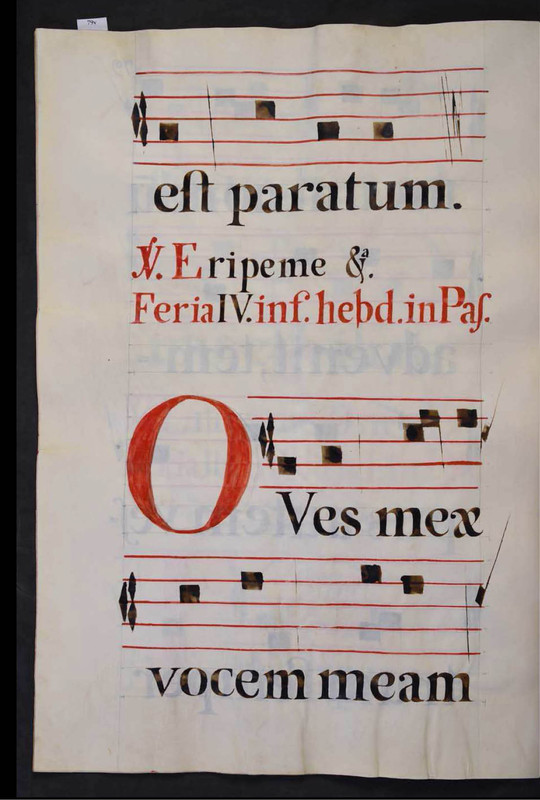 est paratum.
℣. Eripe me &ª.
Feria IV. inf. hebd. in Pas.
OVes meæ
vocem meam